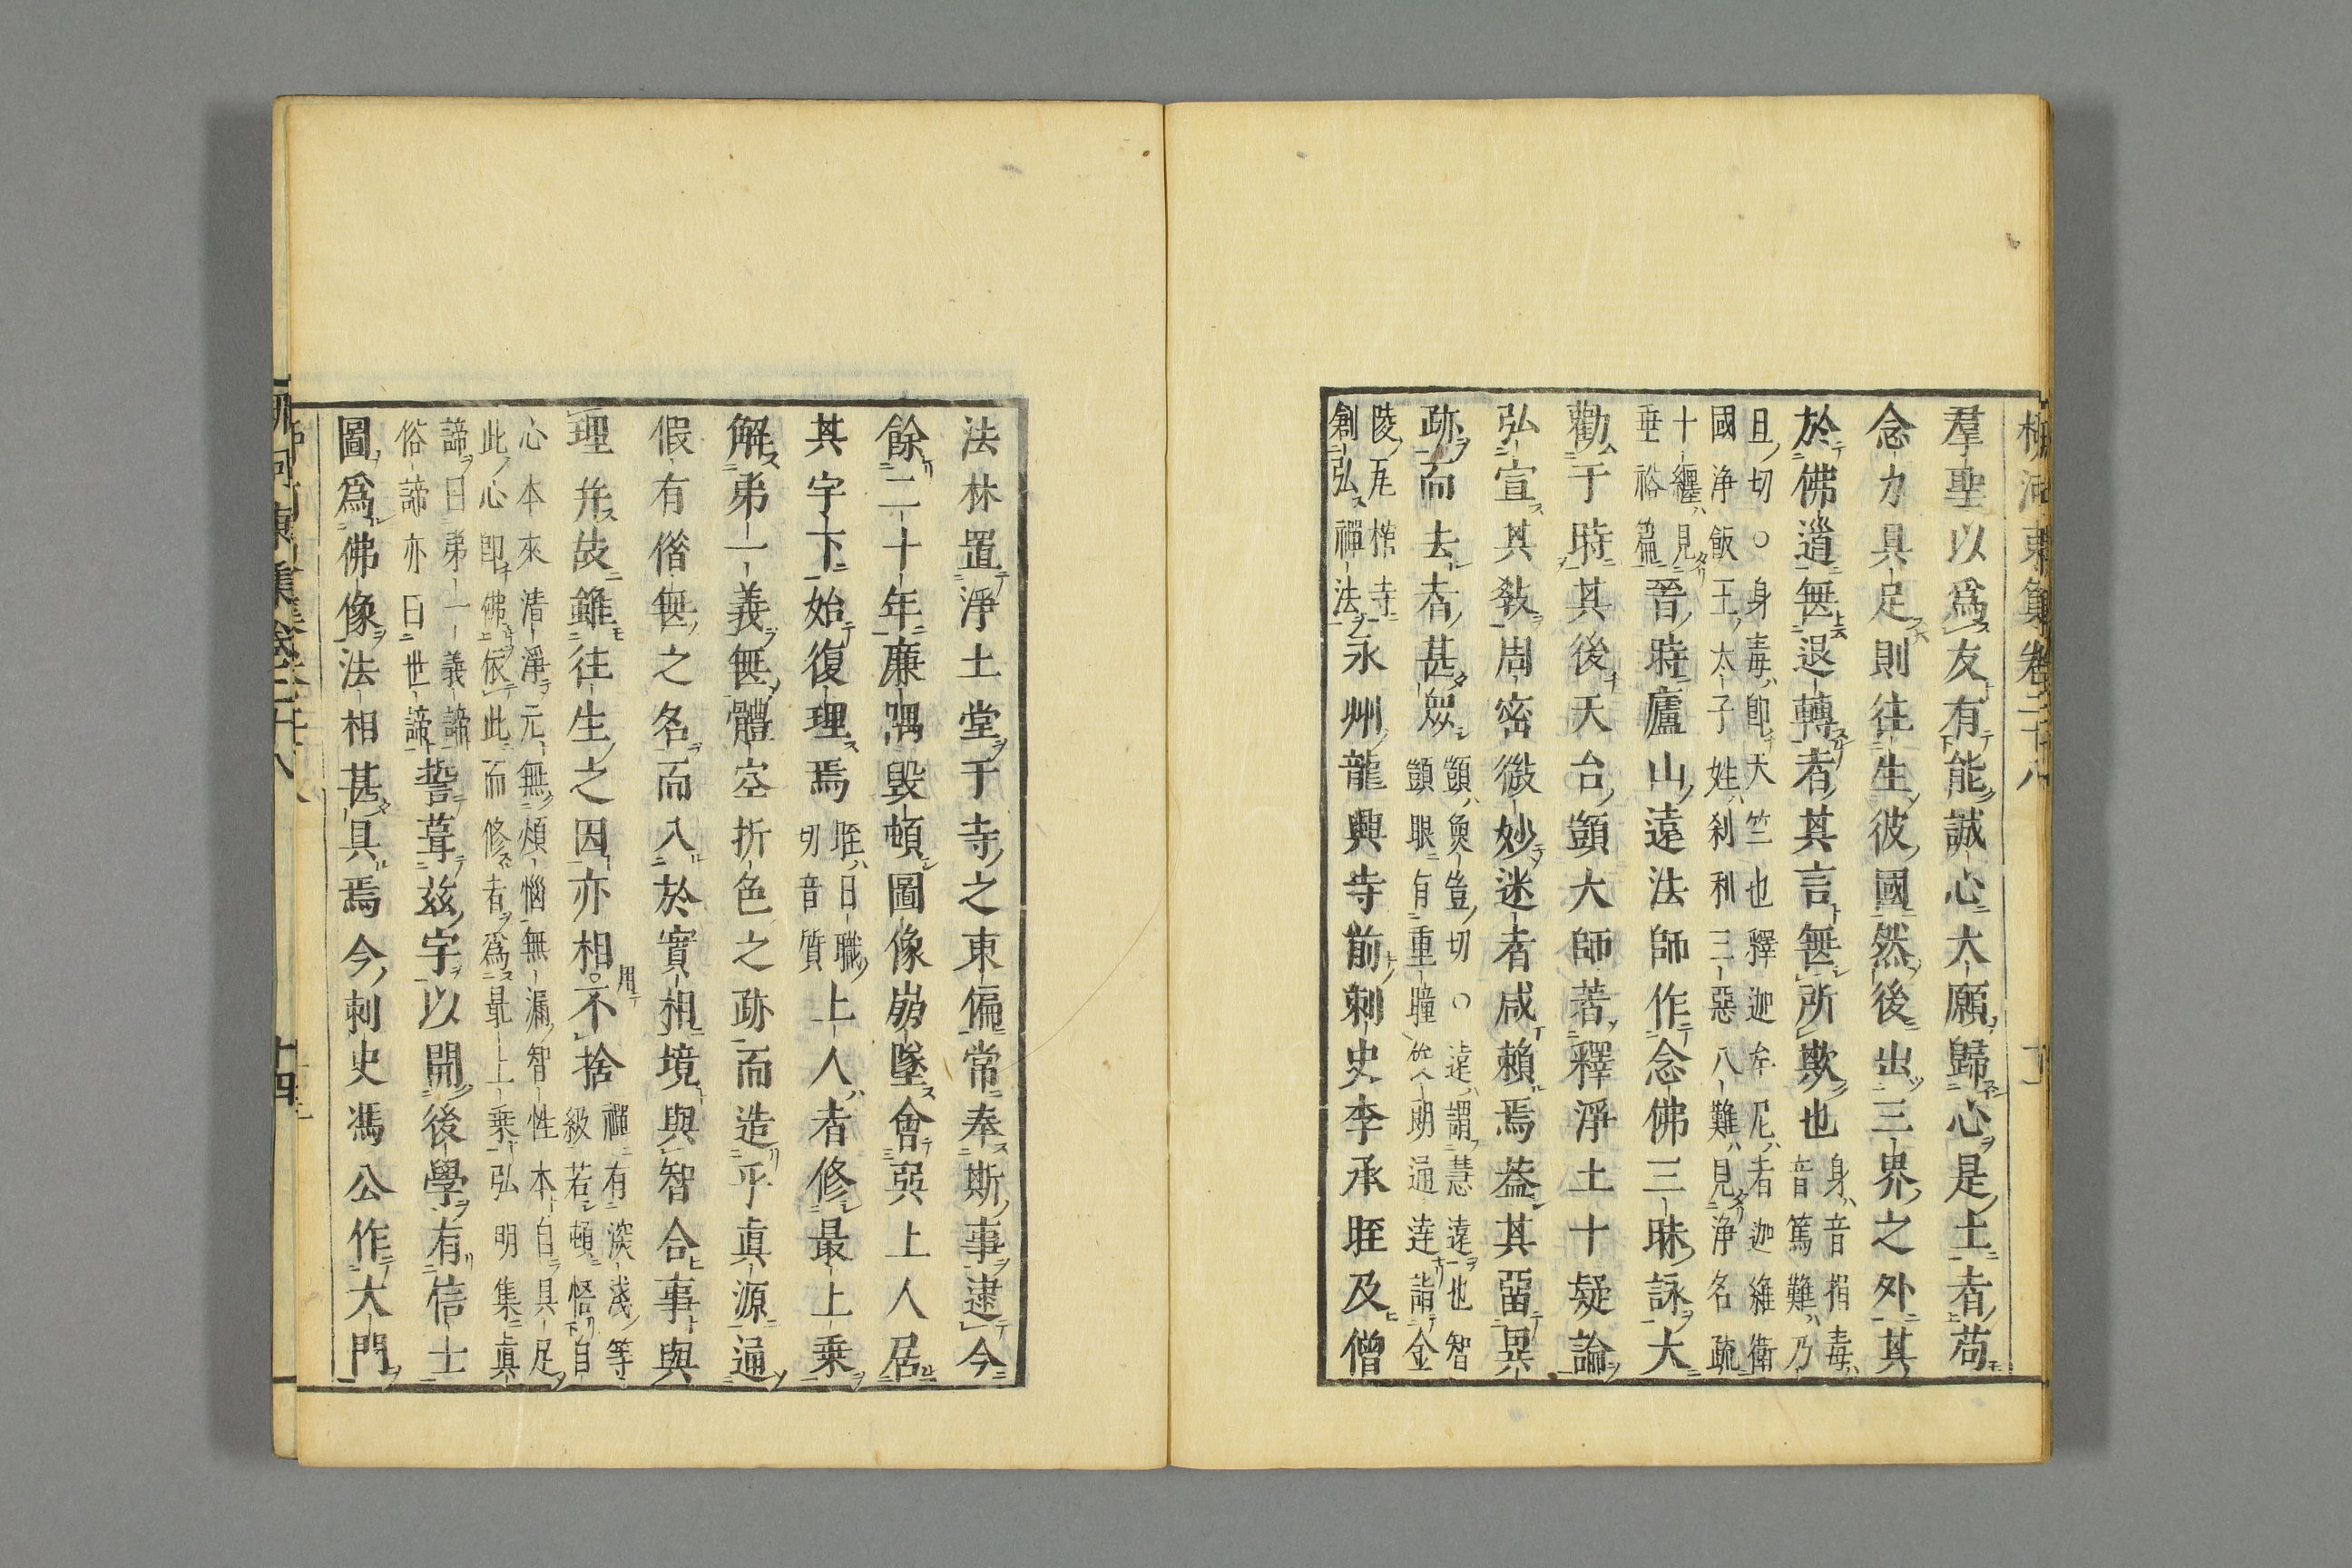 羣聖以爲友有能誠心大願歸心是土者苟
念力具足則往生彼國然後出三界之外其
於佛道無退轉者其言無所欺也
身音捐毒
音篤難乃
且切○身毒即天竺也釋迦牟尼者迦維衛
國淨飯王太子姓刹利三惡八難見淨名疏
十纏見
垂裕篇
晉時廬山遠法師作念佛三昧詠大
勸于時其後天台顗大師著釋淨土十疑論
弘宣其敎周密微妙迷者咸賴焉葢其畱異
跡而去者甚衆
顗魚豈切○逺謂慧逺也智
顗眼有重瞳從人朗通逹詣金
陵瓦棺寺
創弘禪法
永州龍興寺前刺史李承晊及僧
法林置淨土堂于寺之東偏常奉斯事逮今
餘二十年廉隅毀頓圖像崩墜會巽上人居
其宇下始復理焉
晊日職
切音質
上人者修最上乘
解第一義無體空折色之跡而造乎眞源通
假有借無之名而入於實相境與智合事與
理幷故雖往生之因亦相用不捨
禪有深淺等
級若頓悟自
心本來清淨元無煩惱無漏智性本自具足
此心即佛依此而修者爲最上乘弘明集眞
諦曰第一義諦
俗諦亦曰世諦
誓葺茲宇以開後學有信士
圖爲佛像法相甚具焉今刺史馮公作大門